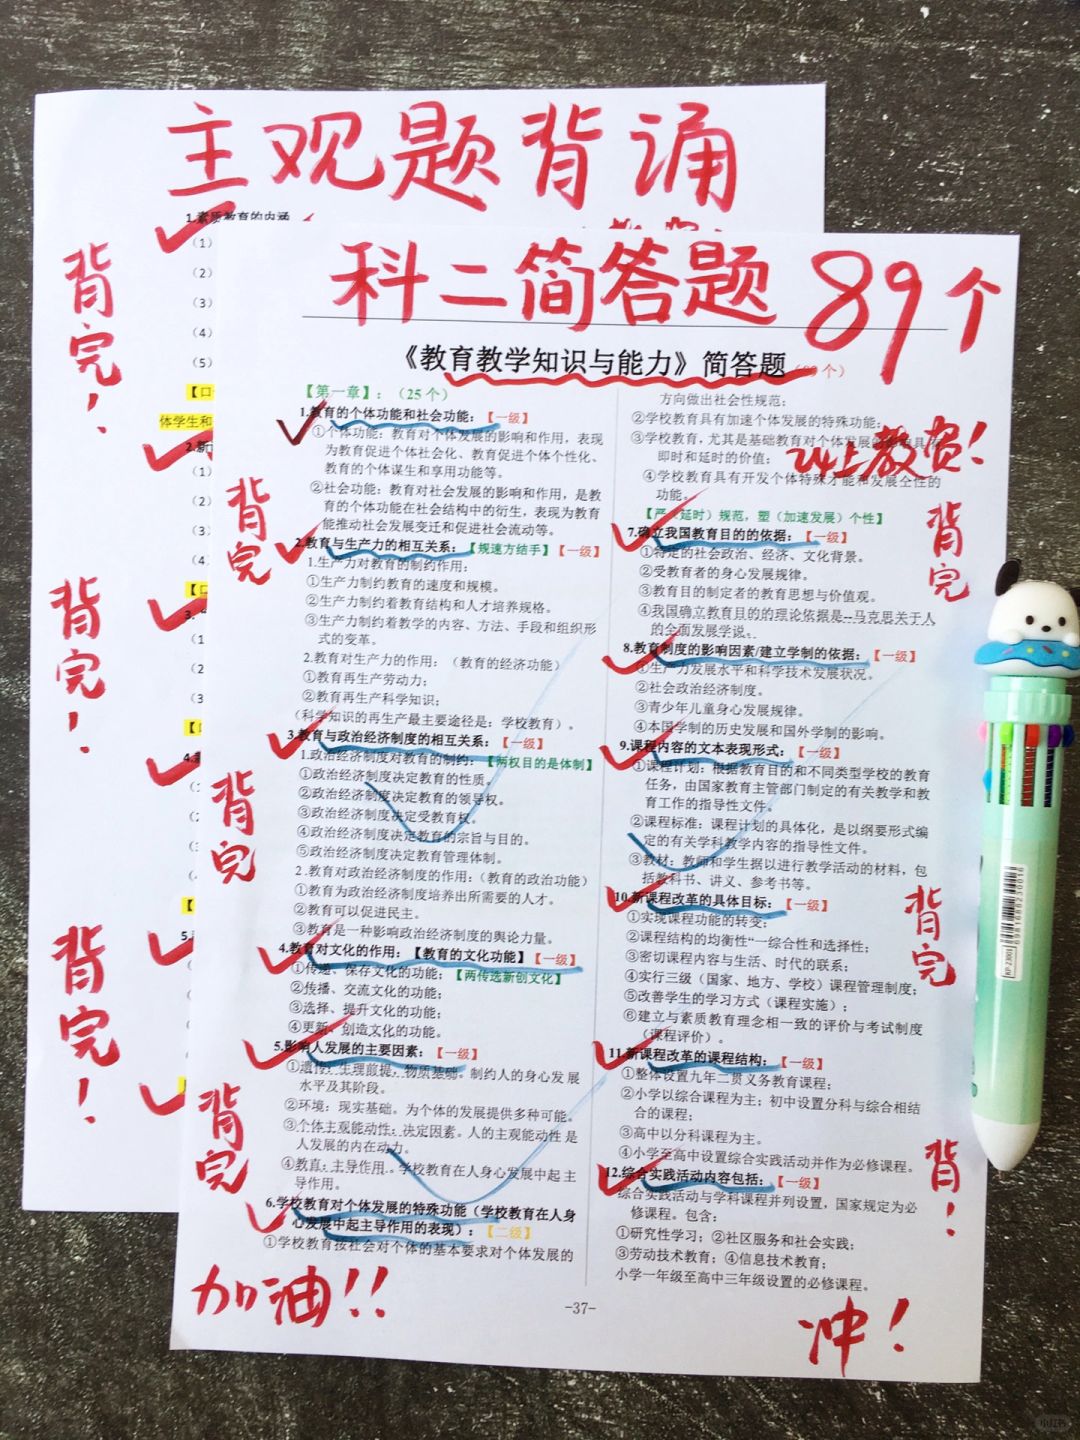 主观题背诵
1.素质教育的内涵
(1)
(2)
(3)
(4)
(5)
【口
体学生和
2.新
(1)
(2)
(3)
(4)
【口
3.
(1)
(2)
(3)
4.
5.
背完！
背完！
背完！
科二简答题 89个
《教育教学知识与能力》简答题
24上教资！
背完
背完
背完
背完
背完
背！
【第一章】：（25个）
1.教育的个体功能和社会功能：【一级】
①个体功能：教育对个体发展的影响和作用，表现
为教育促进个体社会化、教育促进个体个性化、
教育的个体谋生和享用功能等。
②社会功能：教育对社会发展的影响和作用，是教
育的个体功能在社会结构中的衍生，表现为教育
能推动社会发展变迁和促进社会流动等。
2.教育与生产力的相互关系：【规速方结手】【一级】
1.生产力对教育的制约作用：
①生产力制约教育的速度和规模。
②生产力制约着教育结构和人才培养规格。
③生产力制约着教学的内容、方法、手段和组织形
式的变革。
2.教育对生产力的作用：（教育的经济功能）
①教育再生产劳动力；
②教育再生产科学知识；
（科学知识的再生产最主要途径是：学校教育）。
3.教育与政治经济制度的相互关系：【一级】
1.政治经济制度对教育的制约：【两权目的是体制】
①政治经济制度决定教育的性质。
②政治经济制度决定教育的领导权。
③政治经济制度决定受教育权。
④政治经济制度决定教育的宗旨与目的。
⑤政治经济制度决定教育管理体制。
2.教育对政治经济制度的作用：（教育的政治功能）
①教育为政治经济制度培养出所需要的人才。
②教育可以促进民主。
③教育是一种影响政治经济制度的舆论力量。
4.教育对文化的作用：【教育的文化功能】【一级】
①传递、保存文化的功能；【两传选新创文化】
②传播、交流文化的功能；
③选择、提升文化的功能；
④更新、创造文化的功能。
5.影响人发展的主要因素：【一级】
①遗传：生理前提，物质基础。制约人的身心发展
水平及其阶段。
②环境：现实基础。为个体的发展提供多种可能。
③个体主观能动性：决定因素。人的主观能动性是
人发展的内在动力。
④教育：主导作用。学校教育在人身心发展中起主
导作用。
6.学校教育对个体发展的特殊功能（学校教育在人身
心发展中起主导作用的表现）：【二级】
①学校教育按社会对个体的基本要求对个体发展的
方向做出社会性规范；
②学校教育具有加速个体发展的特殊功能；
③学校教育，尤其是基础教育对个体发展的影响具有
即时和延时的价值；
④学校教育具有开发个体特殊才能和发展全性的
功能。
【严（延时）规范，塑（加速发展）个性】
7.确立我国教育目的的依据：【一级】
①特定的社会政治、经济、文化背景。
②受教育者的身心发展规律。
③教育目的制定者的教育思想与价值观。
④我国确立教育目的的理论依据是--马克思关于人
的全面发展学说。
8.教育制度的影响因素/建立学制的依据：【一级】
①生产力发展水平和科学技术发展状况。
②社会政治经济制度。
③青少年儿童身心发展规律。
④本国学制的历史发展和国外学制的影响。
9.课程内容的文本表现形式：【一级】
①课程计划：根据教育目的和不同类型学校的教育
任务，由国家教育主管部门制定的有关教学和教
育工作的指导性文件。
②课程标准：课程计划的具体化，是以纲要形式编
定的有关学科教学内容的指导性文件。
③教材：教师和学生据以进行教学活动的材料，包
括教科书、讲义、参考书等。
10.新课程改革的具体目标：【一级】
①实现课程功能的转变；
②课程结构的均衡性“一综合性和选择性；
③密切课程内容与生活、时代的联系；
④实行三级（国家、地方、学校）课程管理制度；
⑤改善学生的学习方式（课程实施）；
⑥建立与素质教育理念相一致的评价与考试制度
（课程评价）。
11.新课程改革的课程结构：【一级】
①整体设置九年二贯义务教育课程；
②小学以综合课程为主；初中设置分科与综合相结
合的课程；
③高中以分科课程为主。
④小学至高中设置综合实践活动并作为必修课程。
12.综合实践活动内容包括：【一级】
综合实践活动与学科课程并列设置，国家规定为必
修课程。包含：
①研究性学习；②社区服务和社会实践；
③劳动技术教育；④信息技术教育；
小学一年级至高中三年级设置的必修课程。
-37-
加油！！
冲！
小红书